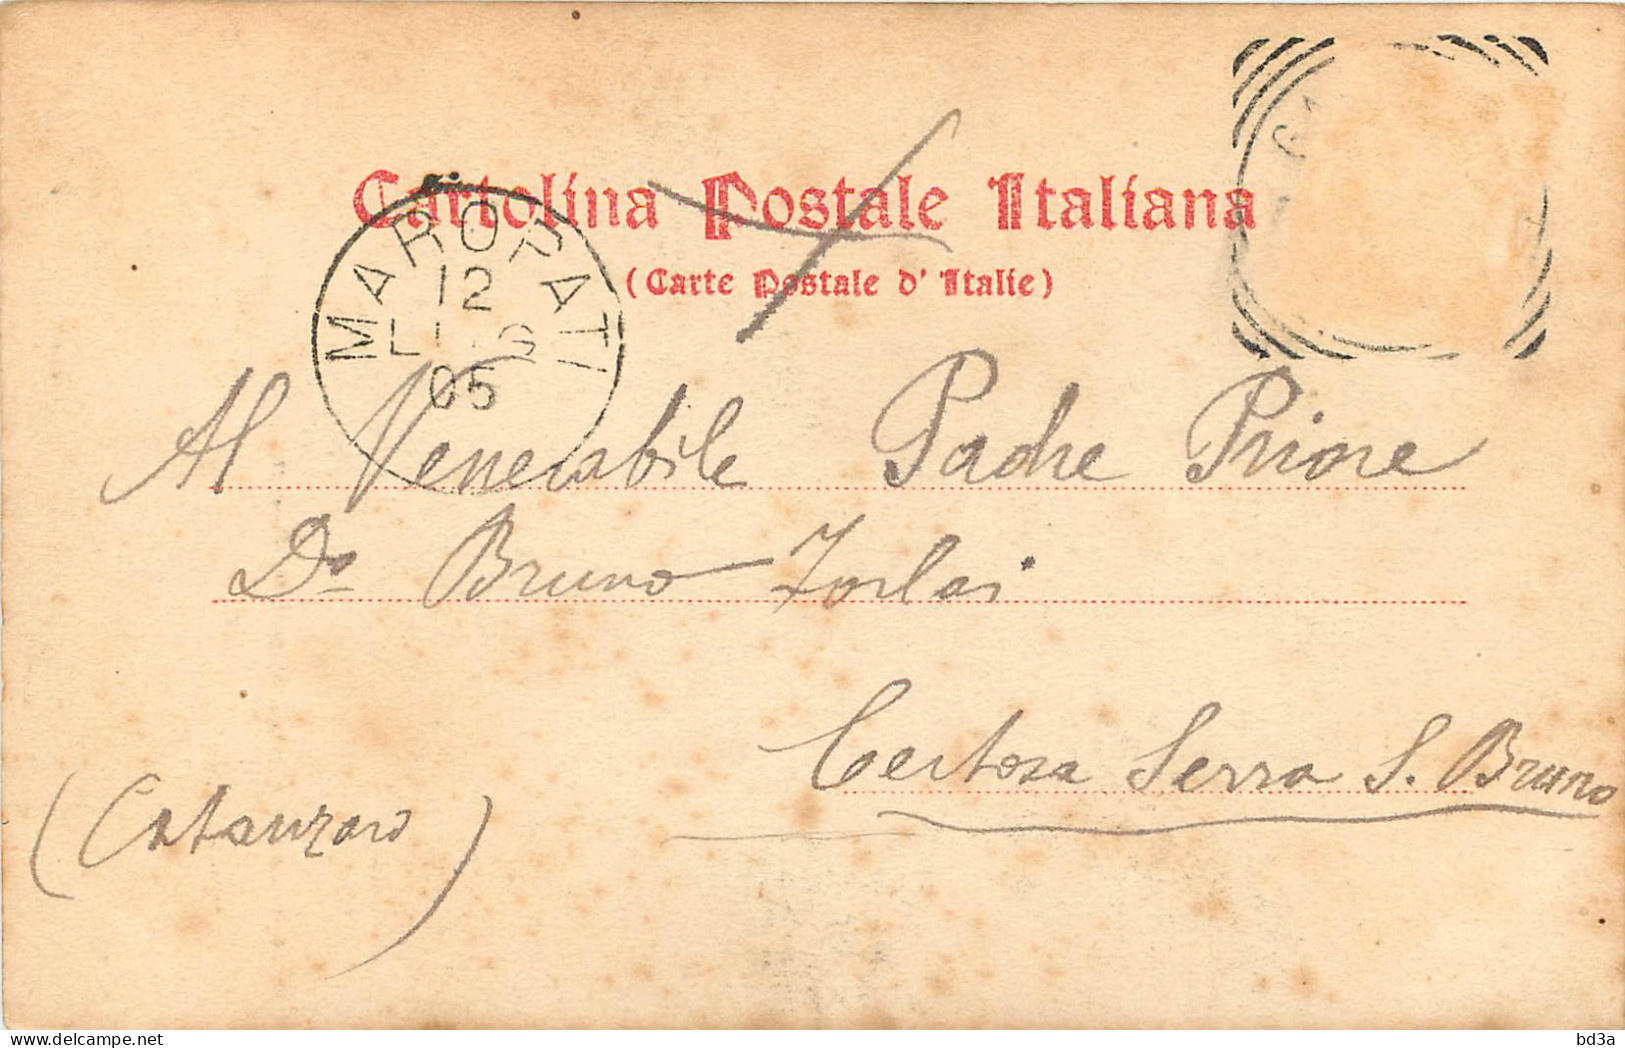 Cartolina Postale Italiana
(Carte Postale d'Italie)
MAROPATI
12
LUG
05
Al Venerabile Padre Priore
Dn Bruno
Certosa Serra S. Bruno
(Catanzaro)
bd3a